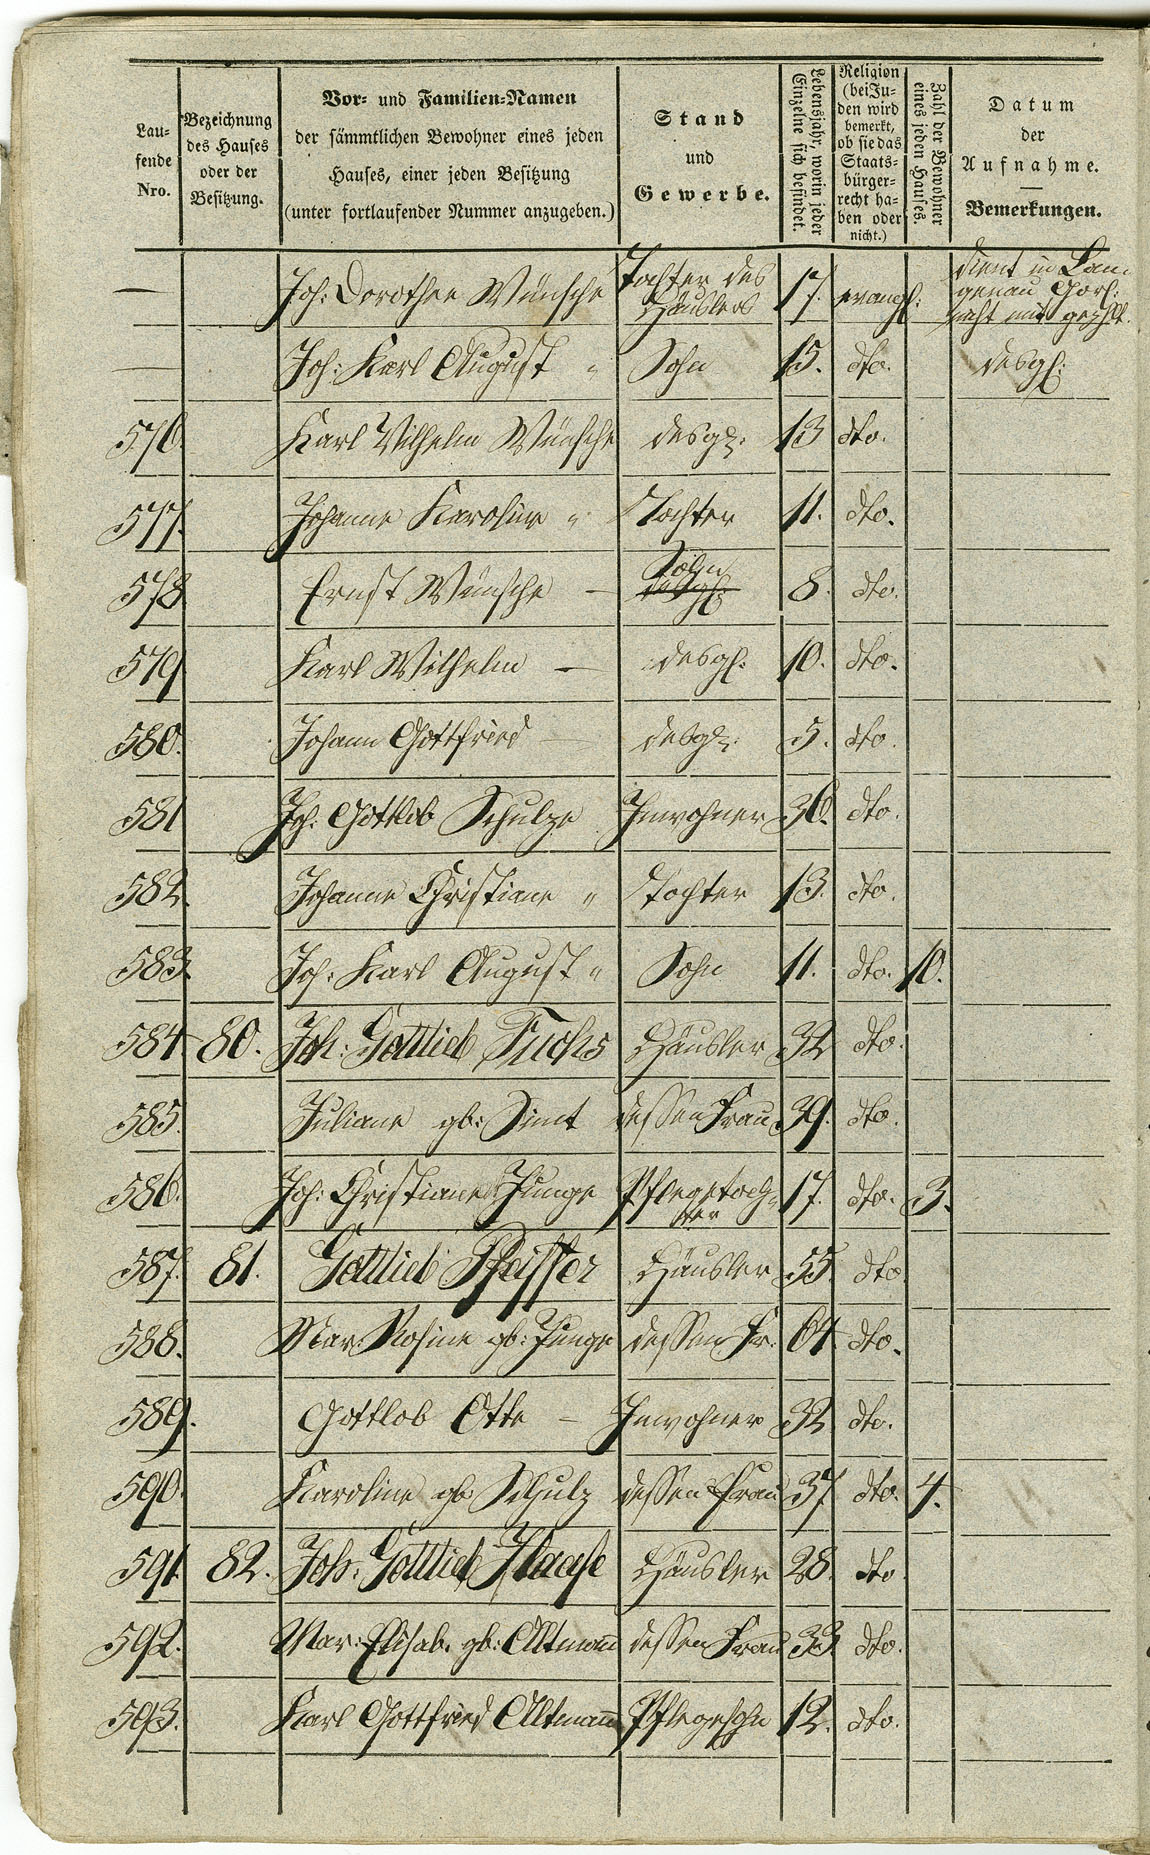 Laufende Nro.
Bezeichnung des Hauses oder der Besitzung.
Vor- und Familien-Namen
der sämmtlichen Bewohner eines jeden
Hauses, einer jeden Besitzung
(unter fortlaufender Nummer anzugeben.)
Stand
und
Gewerbe.
Lebensjahr, worin jeder Einzelne sich befindet.
Religion (bei Juden wird bemerkt, ob sie das Staatsbürgerrecht haben oder nicht.)
Zahl der Bewohner eines jeden Hauses.
Datum
der
Aufnahme.
Bemerkungen.
— Joh: Dorothee Wünsche Tochter des Häuslers 17. evangl: dient in Lan-
genau Görl:
nicht mit gezhlt.
— Joh: Karl August " Sohn 15. dto. desgl:
576. Karl Wilhelm Wünsche desgl: 13 dto.
577. Johanne Karoline " Tochter 11. dto.
578 Ernst Wünsche — Sohn desgl: 8. dto.
579 Karl Wilhelm — desgl. 10. dto.
580. Johann Gottfried — desgl: 5. dto.
581 Joh: Gottlob Schulze Inwohner 36. dto.
582. Johanne Christiane " Tochter 13. dto.
583. Joh: Karl August " Sohn 11. dto. 10.
584 80. Joh: Gottlieb Fuchs Häusler 32 dto.
585. Juliane gb: Simt dessen Frau 39. dto.
586. Joh: Christiane Junge Pflegetoch-
ter 17. dto. 3.
587. 81. Gottlieb Pfeiffer Häusler 55. dto.
588. Mar: Rosine gb: Junge dessen Fr: 64. dto.
589. Gottlob Otte — Inwohner 32 dto.
590. Karoline gb: Schulz dessen Frau 37 dto. 4.
591. 82. Joh: Gottlieb Haase Häusler 28. dto.
592. Mar: Elisab. gb: Altmann dessen Frau 33 dto.
593. Karl Gottfried Altmann Pflegesohn 12. dto.